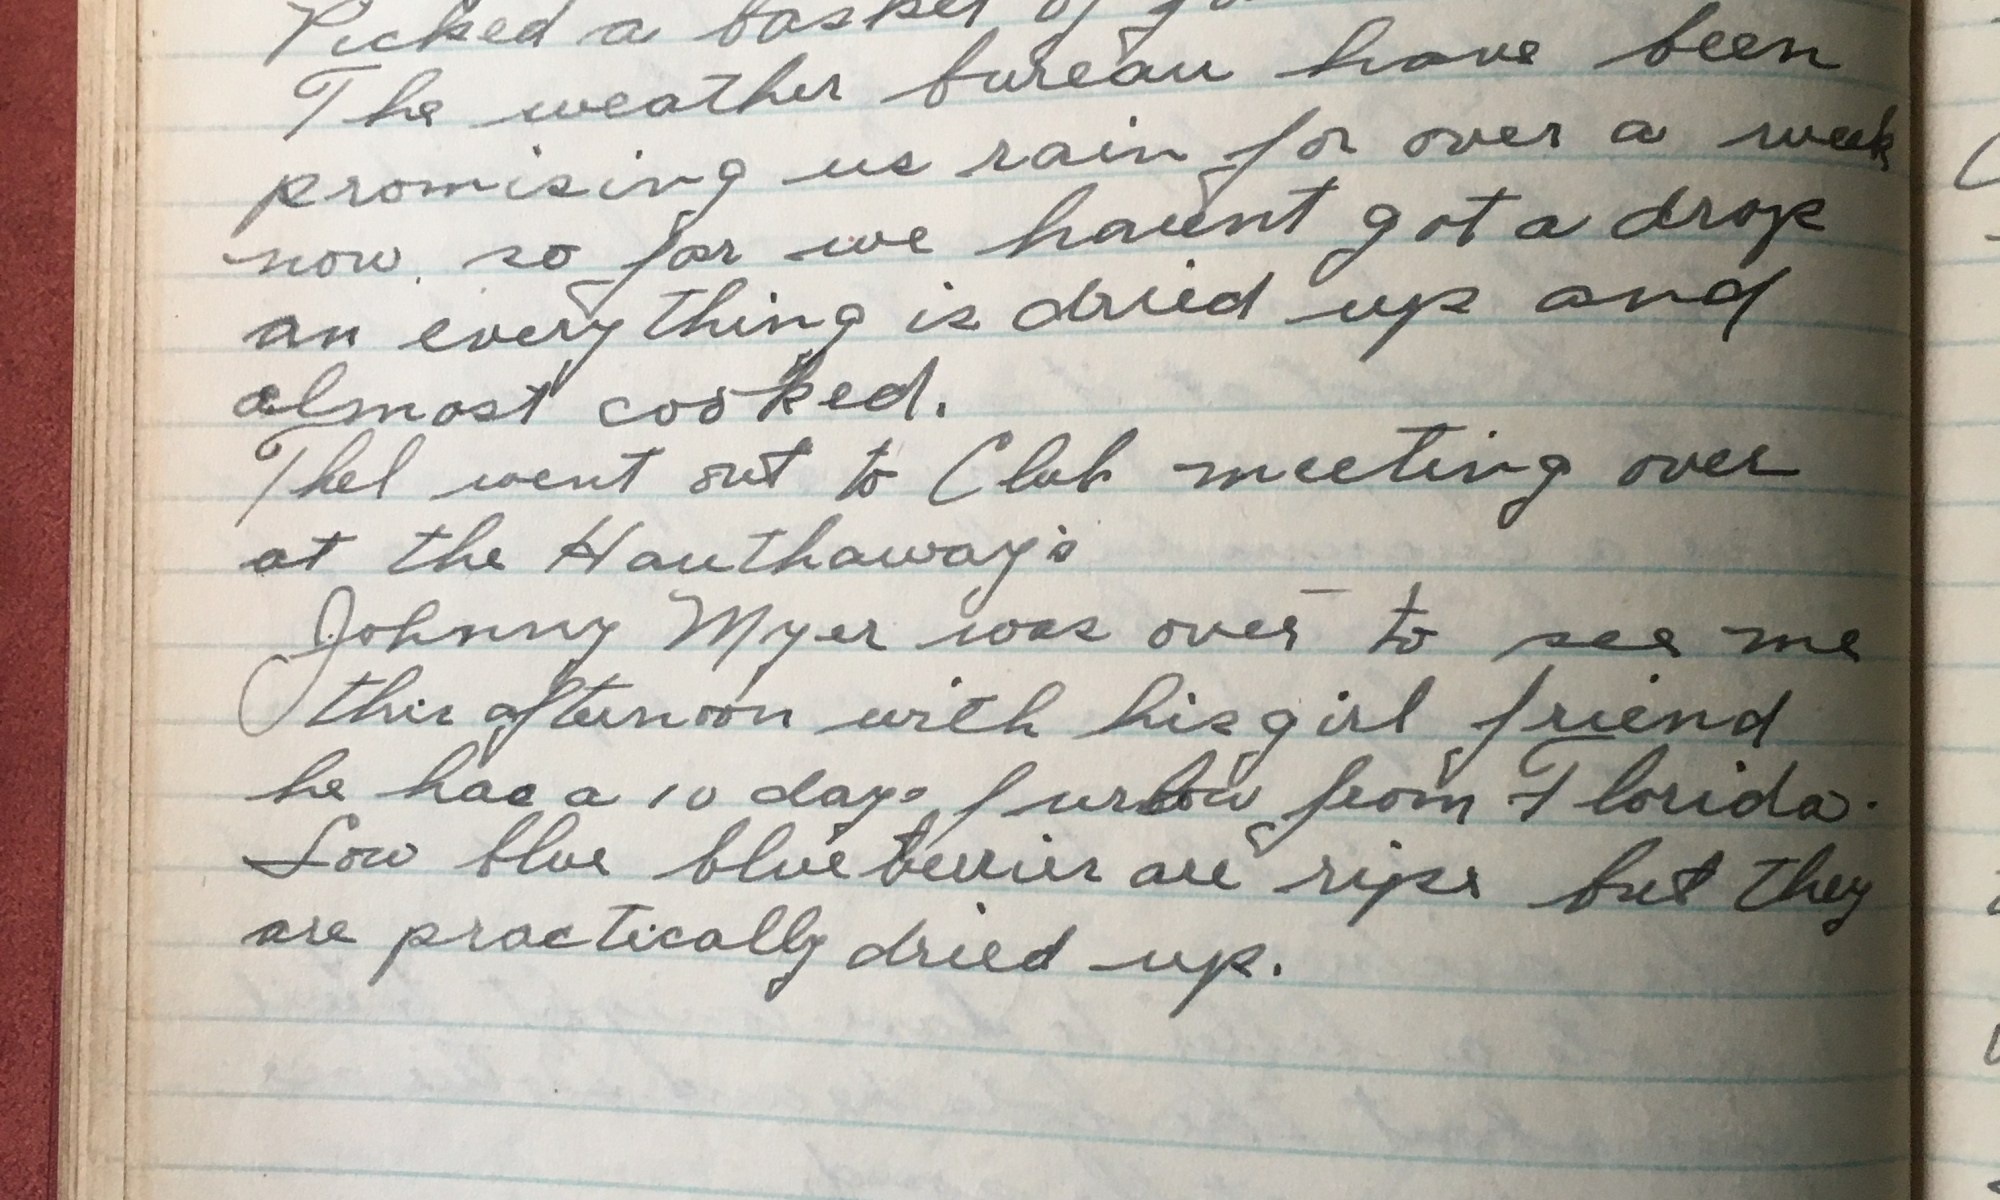 Picked a basket of
The weather bureau have been
promising us rain for over a week
now. so far we havent got a drop
an everything is dried up and
almost cooked.
Thel went out to Club meeting over
at the Hauthaway's
Johnny Myer was over to see me
this afternoon with his girl friend
he has a 10 days furlow from Florida.
Low blue blueberries are ripe but they
are practically dried up.